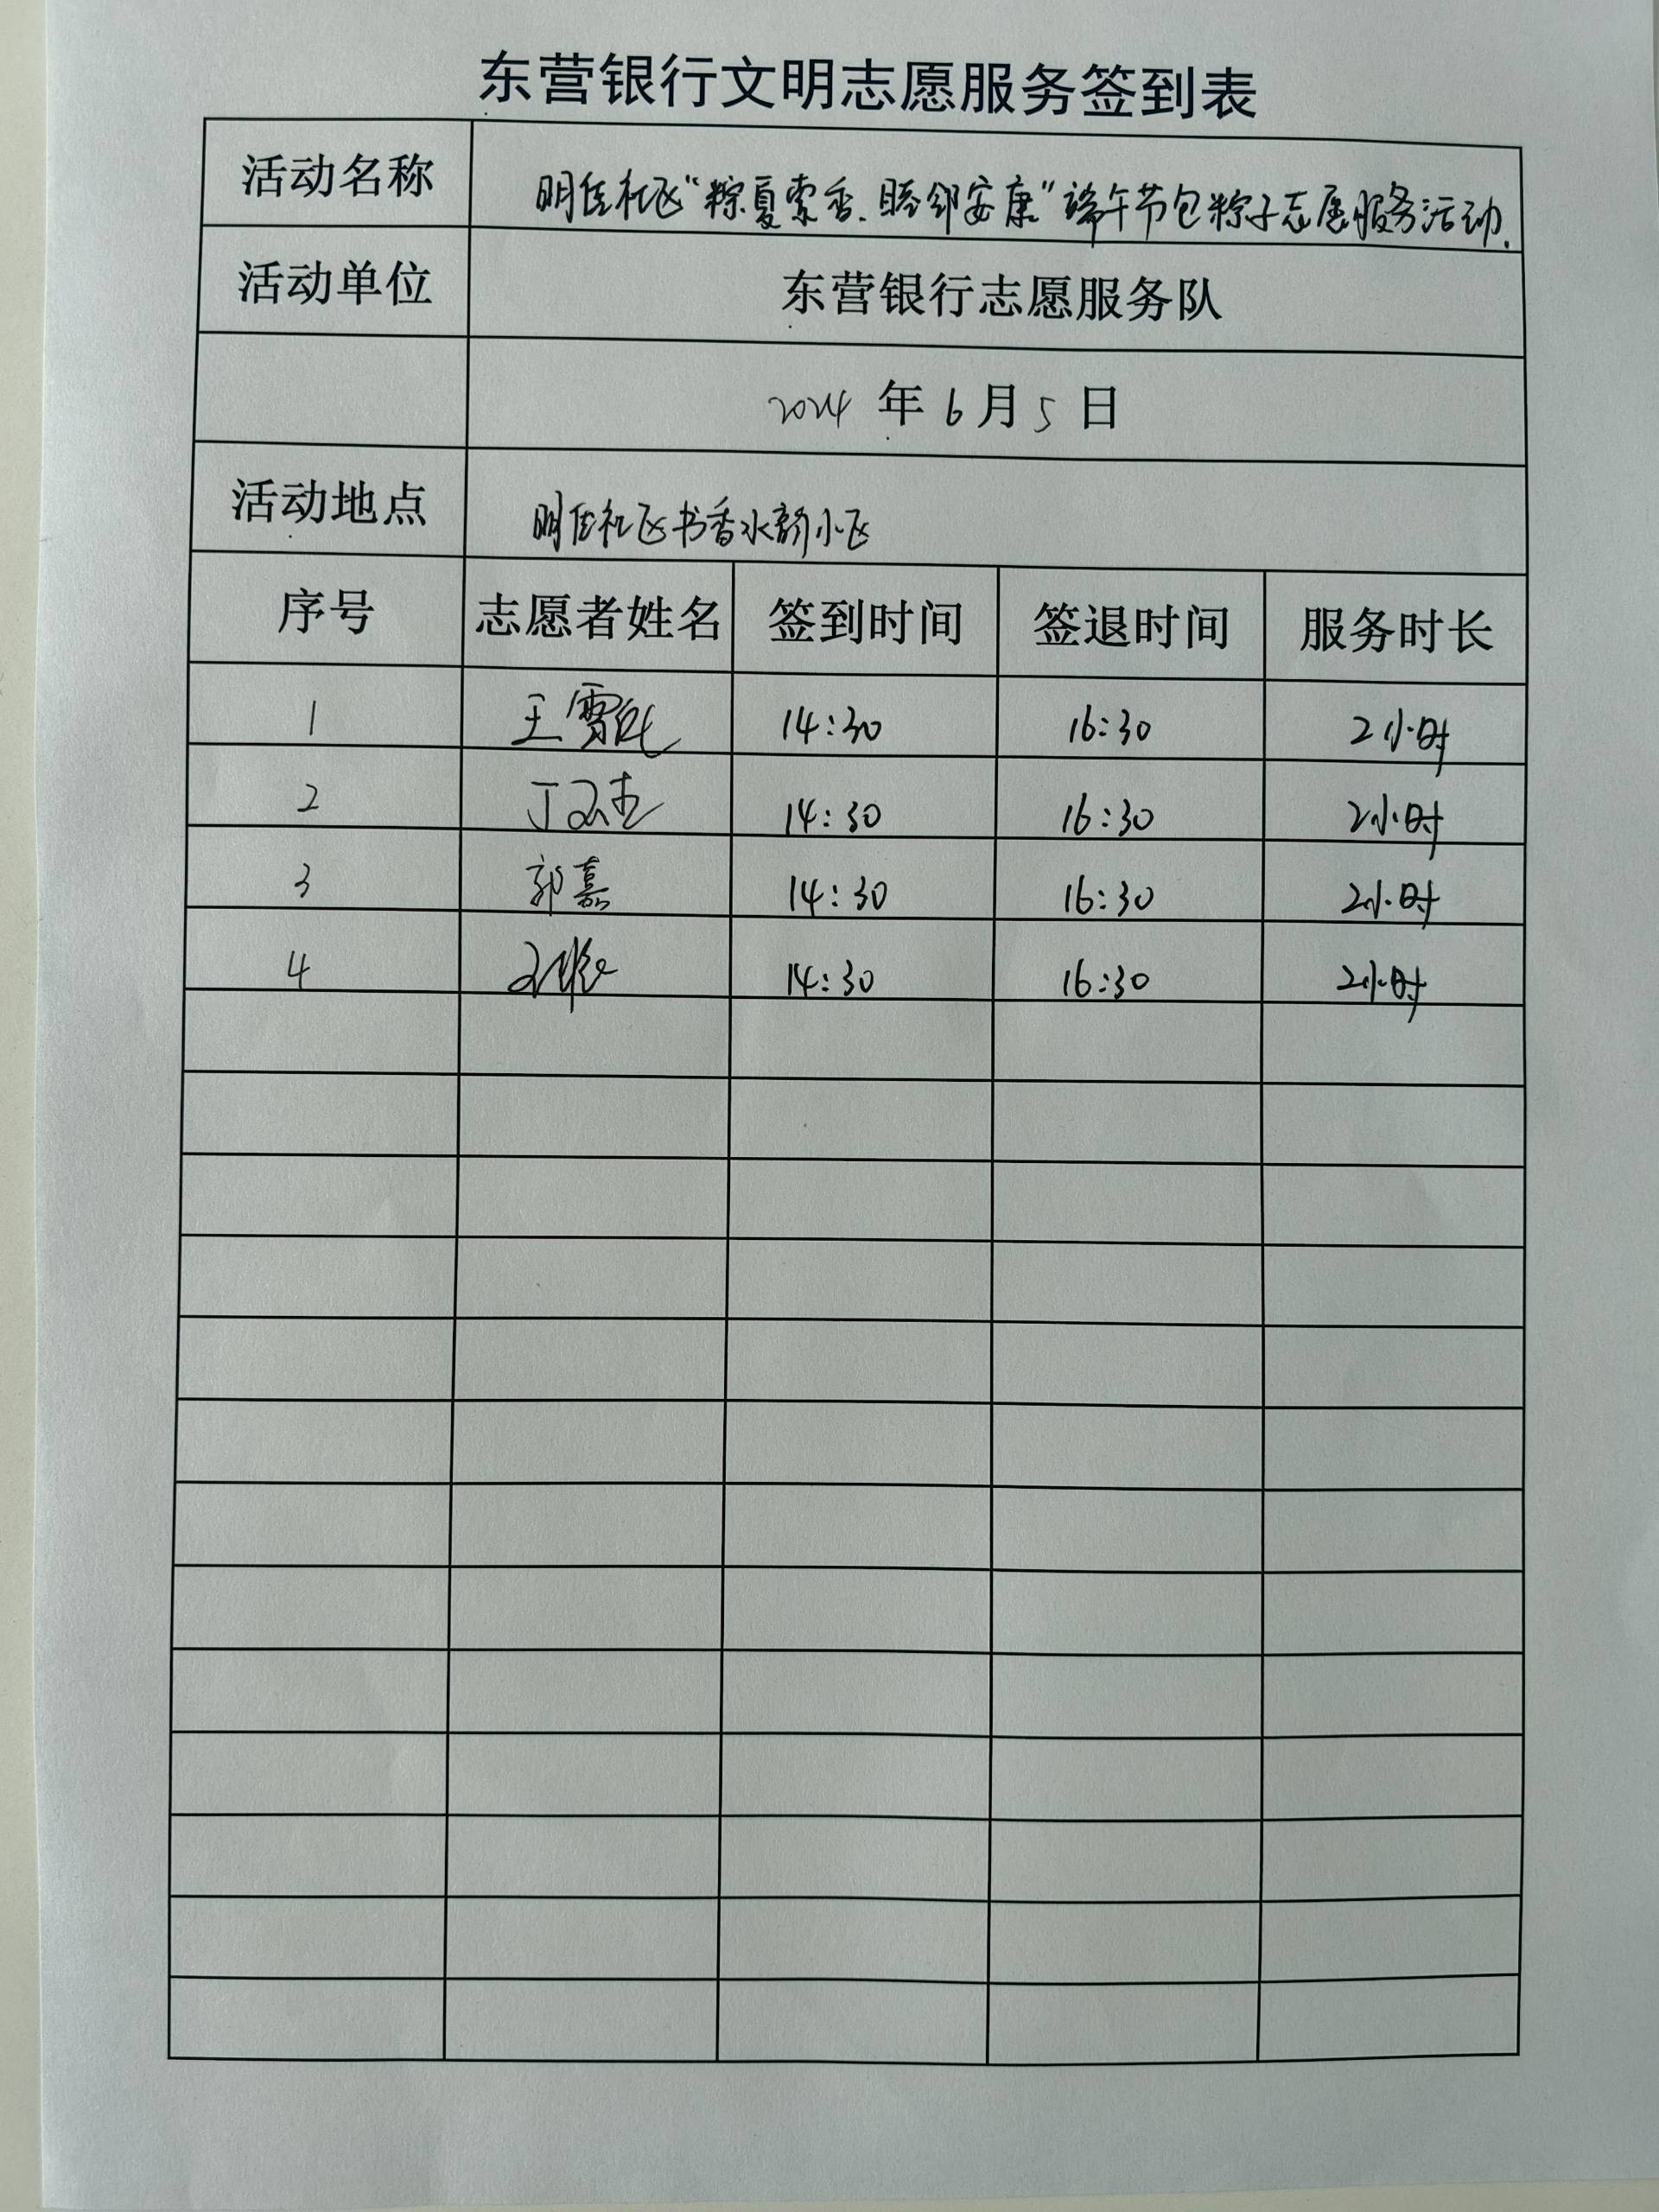 东营银行文明志愿服务签到表
活动名称 明佳社区“粽夏索香.睦邻安康”端午节包粽子志愿服务活动.
活动单位 东营银行志愿服务队
2024 年 6 月 5 日
活动地点 明佳社区书香水韵小区
序号 志愿者姓名 签到时间 签退时间 服务时长
1 王雪 14:30 16:30 2小时
2 丁 14:30 16:30 2小时
3 郭嘉 14:30 16:30 2小时
4 14:30 16:30 2小时